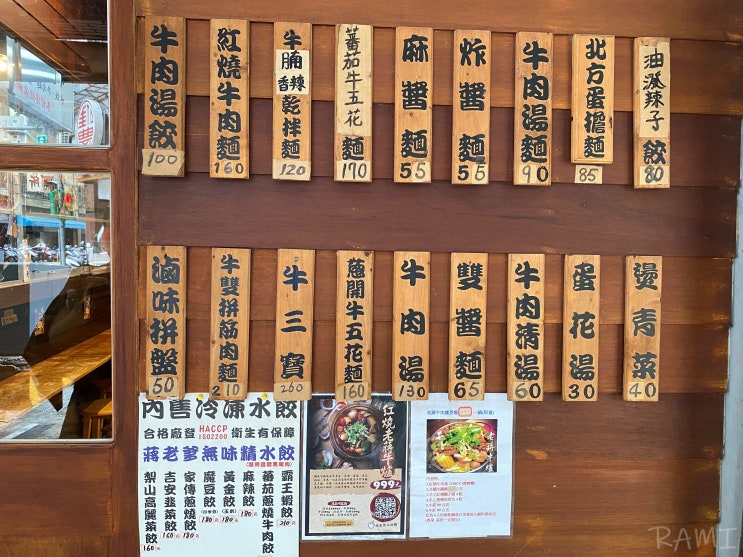 牛肉湯餃 100
紅燒牛肉麵 160
牛腩香辣乾拌麵 120
蕃茄牛五花麵 170
麻醬麵 55
炸醬麵 55
牛肉湯麵 90
北方蛋擔麵 85
油潑辣子餃 80
滷味拼盤 50
牛雙拼筋肉麵 210
牛三寶 260
蔥開牛五花麵 160
牛肉湯 130
雙醬麵 65
牛肉清湯 60
蛋花湯 30
燙青菜 40
內售冷凍水餃
合格廠登 HACCP ISO2200 衛生有保障
蔣老爹無味精水餃
霸王蝦餃 210
蕃茄蔥燒牛肉餃
麻辣餃 180
黃金餃 180
魔豆餃 180
家傳蔥燒餃 180
吉安韭菜餃 160
梨山高麗菜餃 160
紅燒老蔣牛爐
999元
RAMI